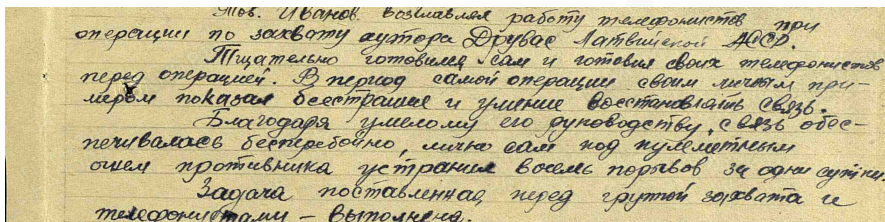 Тов. Иванов. возглавлял работу телефонистов при
операции по захвату хутора Друвас Латвийской ССР.
Тщательно готовился сам и готовил своих телефонистов
перед операцией. В период самой операции своим личным при-
мером показал бесстрашие и умение восстановлять связь.
Благодаря умелому его руководству, связь обес-
печивалась бесперебойно, лично сам под пулеметным
огнем противника устранил восемь порывов за одни сутки.
Задача поставленная перед группой захвата и
телефонистами – выполнена.